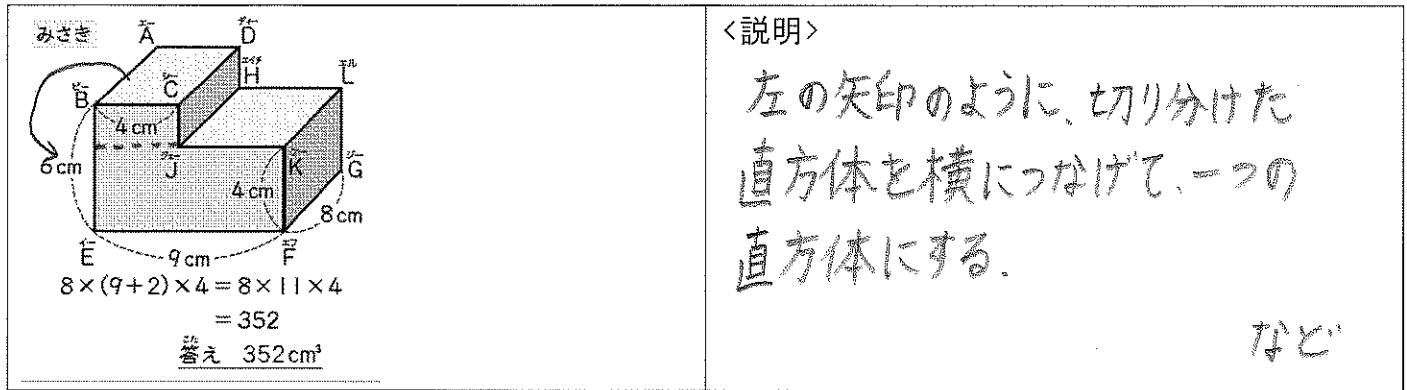 みさき
A
D
H
L
B
C
4cm
6cm
J
K
G
4cm
8cm
E
9cm
F
8×(9+2)×4=8×11×4
=352
答え 352cm³
<説明>
左の矢印のように、切り分けた
直方体を横につなげて、一つの
直方体にする.
など